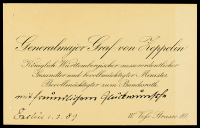 Generalmajor Graf von Zeppelin
Königlich Württembergischer ausserordentlicher
Gesandter und bevollmächtigter Minister
Bevollmächtigter zum Bundesrath
mit freundlichem Glückwunsche
Berlin 1.3.89
W. Voss-Strasse 10